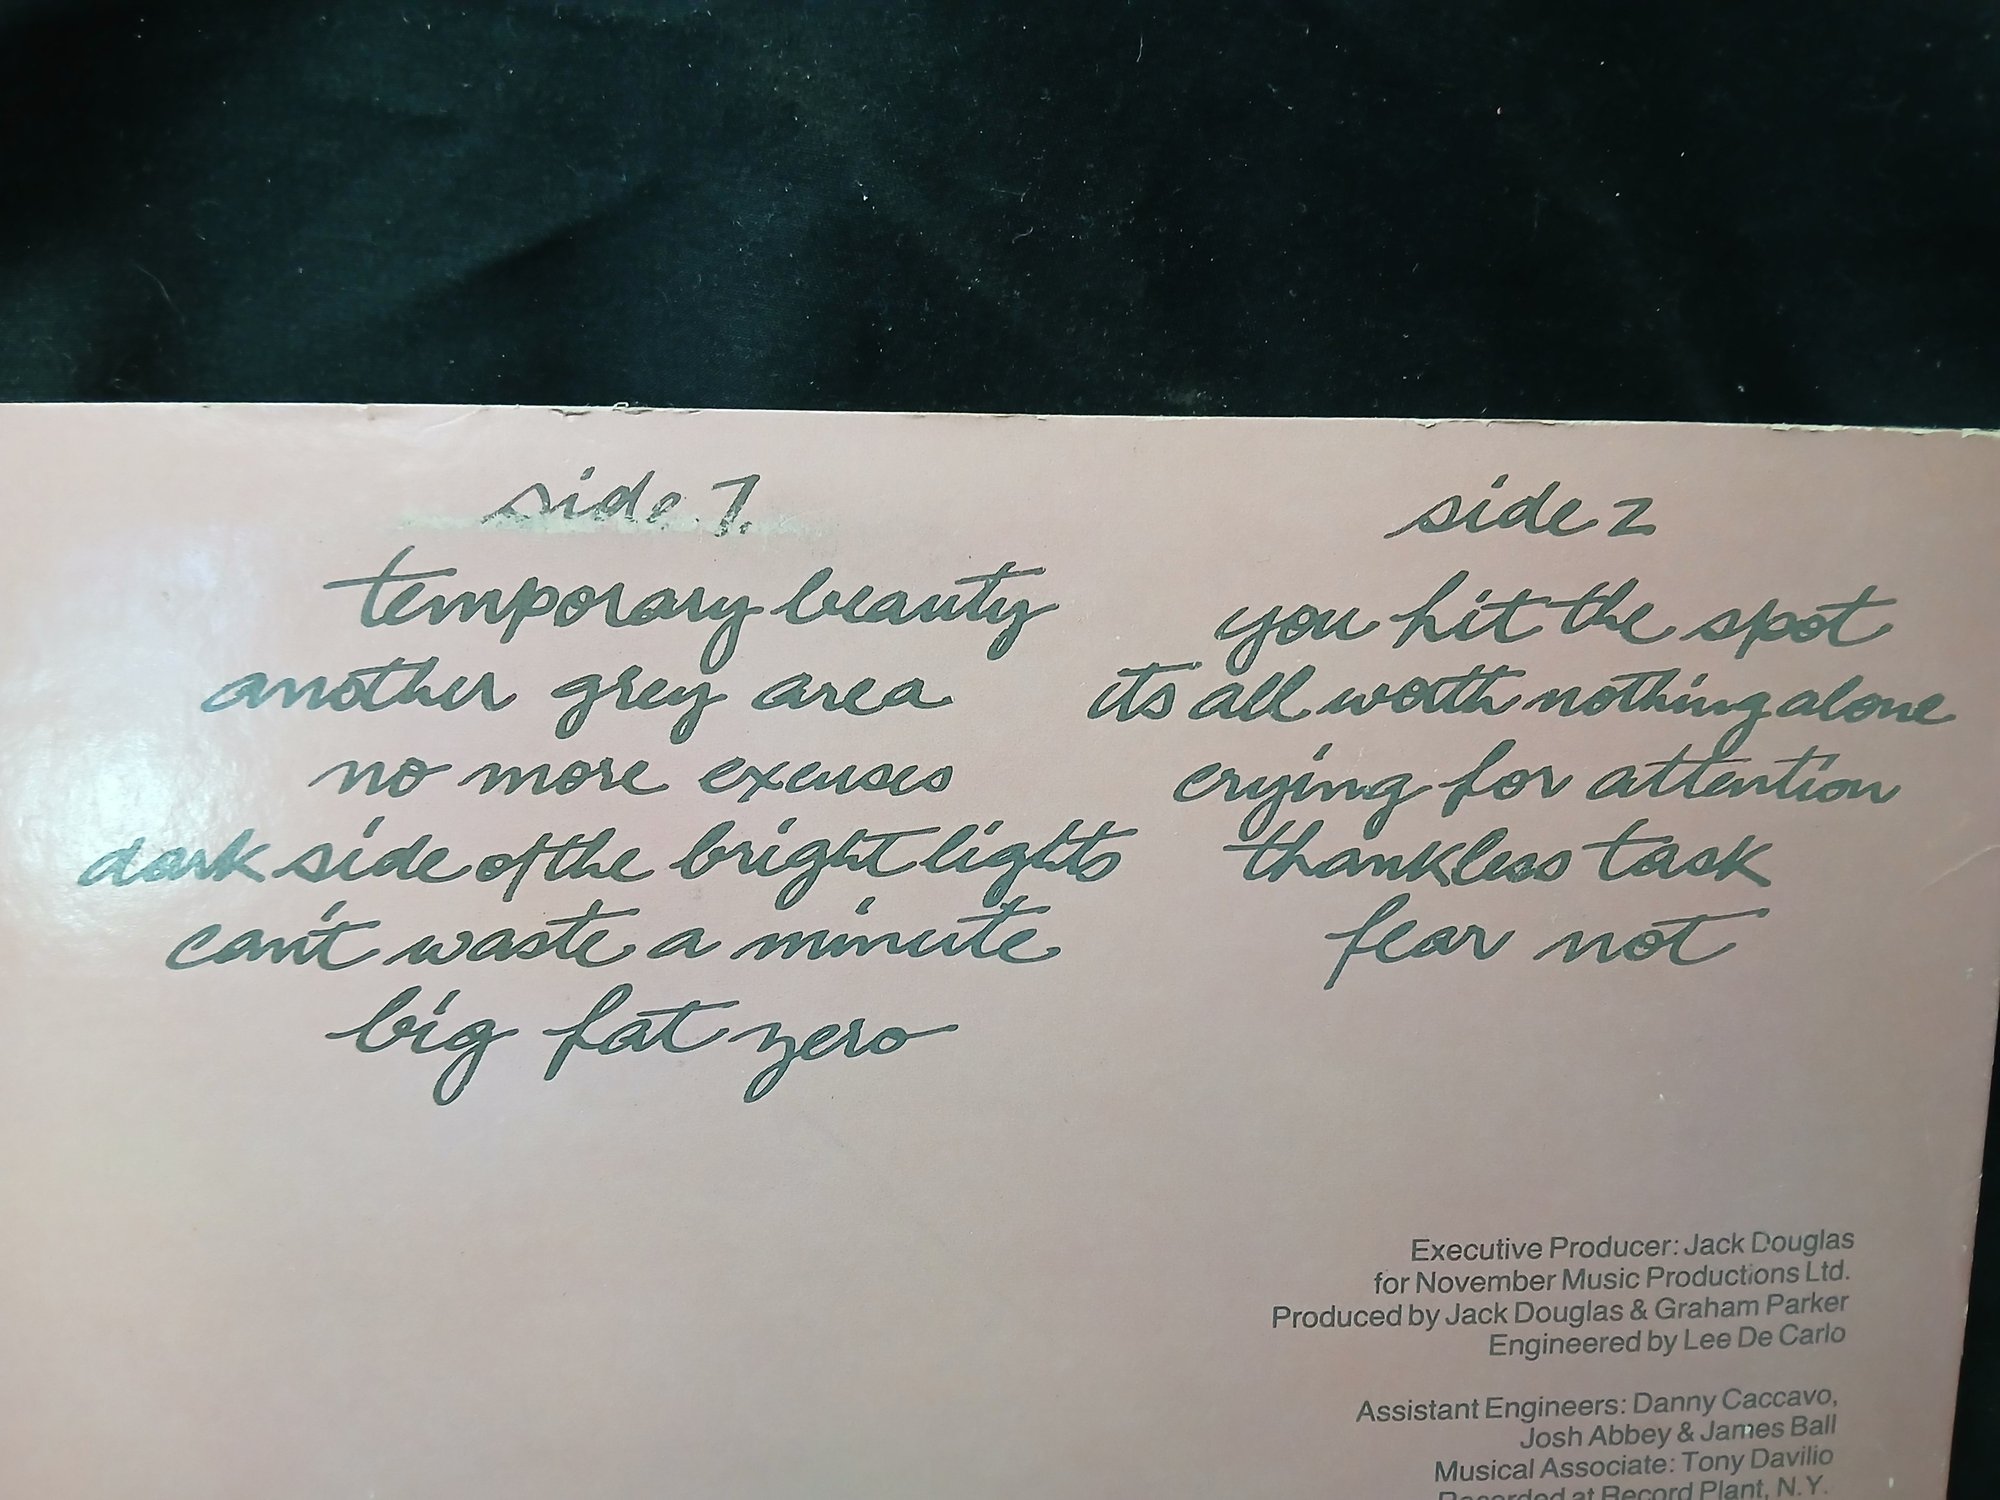 side 1.
temporary beauty
another grey area
no more excuses
dark side of the bright lights
can't waste a minute
big fat zero
side 2
you hit the spot
it's all worth nothing alone
crying for attention
thankless task
fear not
Executive Producer: Jack Douglas
for November Music Productions Ltd.
Produced by Jack Douglas & Graham Parker
Engineered by Lee De Carlo
Assistant Engineers: Danny Caccavo,
Josh Abbey & James Ball
Musical Associate: Tony Davilio
Recorded at Record Plant, N.Y.